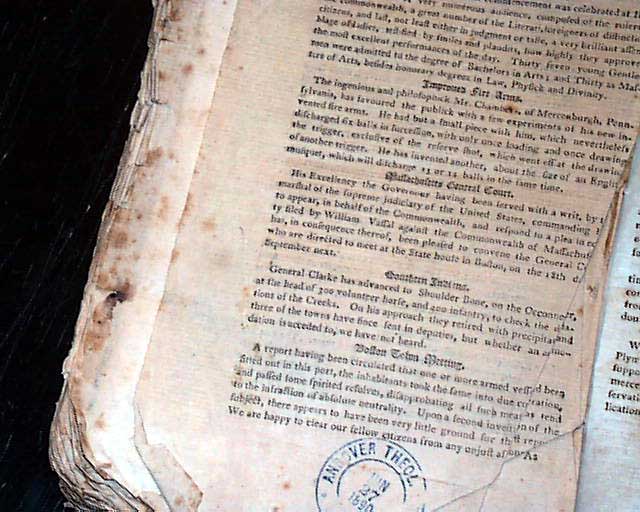 commencement was celebrated at
very numerous audience, composed of the
commonwealth, a great number of the Literati, foreigners of distinct
citizens, and last, not least either in judgment or taste, a very brilliant
blage of ladies, testified by smiles and plaudits, how highly they appro
the most excellent performances of the day. Thirty seven young Gentle
men were admitted to the degree of Bachelors in Arts; and Thirty as Mas
ters of Arts, besides honorary degrees in Law, Physick and Divinity.
Improved Fire Arms.
The ingenious and philosophick Mr. Chambers, of Mercersburgh, Penn
sylvania, has favoured the publick with a few experiments of his new in
vented fire arms. He had but a small piece with him, which nevertheless
discharged six balls in succession, with only once loading and once drawing
the trigger, exclusive of the reserve shot, which went off at the drawing
of another trigger. He has invented another, about the size of an English
musquet, which will discharge 15 or 12 balls in the same time.
Massachusetts General Court.
His Excellency the Governor having been served with a writ, by
marshal of the supreme judiciary of the United States, commanding
to appear, in behalf of the Commonwealth, and respond to a plea in
ty filed by William Vassal against the Commonwealth of Massachus
has, in consequence thereof, been pleased to convene the General C
who are directed to meet at the State house in Boston, on the 18th
September next.
Southern Indians.
General Clarke has advanced to Shoulder Bone, on the Occonnee,
at the head of 300 volunteer horse, and 200 infantry, to check the
tions of the Creeks. On his approach they retired with precipitation, and
three of the towns have since sent in deputies, but whether an accom
dation is acceded to, we have not heard.
Boston Town Meeting.
A report having been circulated that one or more armed vessels had been
fitted out in this port, the inhabitants took the same into due consideration,
and passed some spirited resolves, disapprobating all such means as tend
to the infraction of absolute neutrality. Upon a second of the
subject, there appears to have been very little ground for the report. As
We are happy to clear our fellow citizens from any unjust
ANDOVER THEOL.
JUN
27
1890